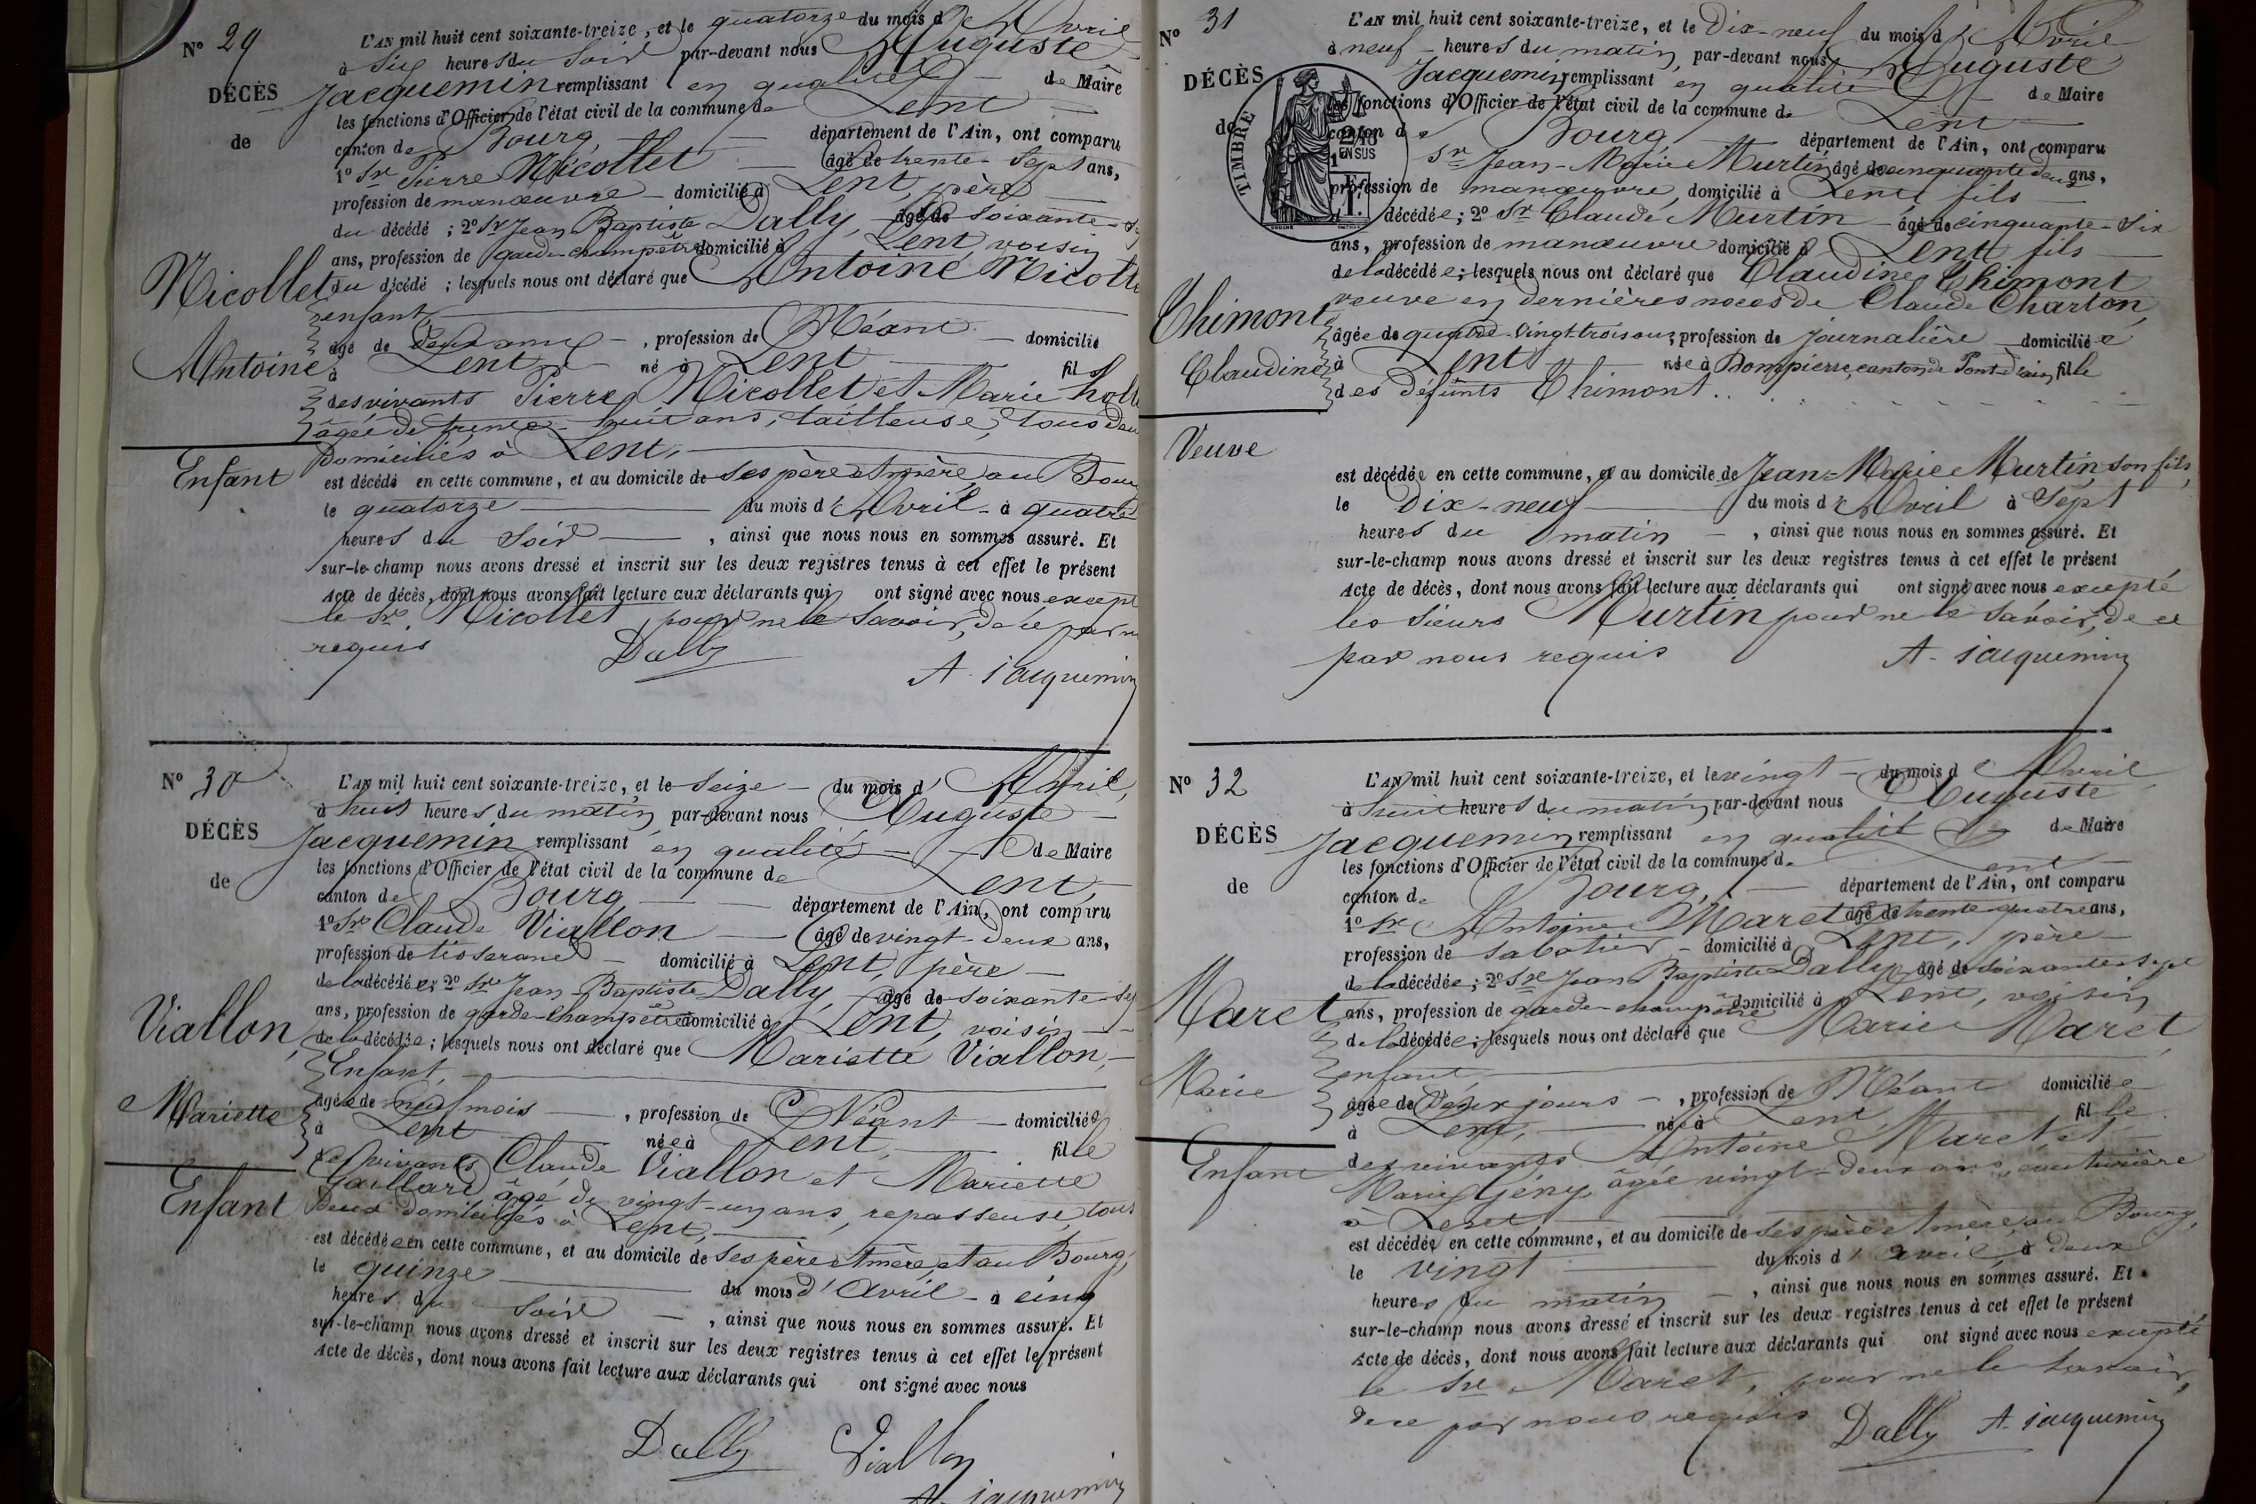 N° 29
DÉCÈS
de
Nicollet
Antoine
Enfant
L'AN mil huit cent soixante-treize, et le quatorze du mois d'Avril
à six heures du soir par-devant nous Auguste
Jacquemin remplissant en qualité de Maire
les fonctions d'Officier de l'état civil de la commune de Lent
canton de Bourg département de l'Ain, ont comparu
1° Sr Pierre Nicollet âgé de trente-sept ans,
profession de manœuvre domicilié à Lent, père
du décédé ; 2° Sr Jean Baptiste Dally, âgé de soixante
ans, profession de garde-champêtre domicilié à Lent voisin
du décédé ; lesquels nous ont déclaré que Antoine Nicollet
enfant
âgé de deux ans , profession de Néant domicilié
à Lent né à Lent fils
des vivants Pierre Nicollet et Marie
âgée de trente-huit ans, tailleuse, tous deux
domiciliés à Lent,
est décédé en cette commune, et au domicile de ses père et mère, au Bourg
le quatorze du mois d'Avril à quatre
heures du soir , ainsi que nous nous en sommes assuré. Et
sur-le-champ nous avons dressé et inscrit sur les deux registres tenus à cet effet le présent
Acte de décès, dont nous avons fait lecture aux déclarants qui ont signé avec nous excepté
le Sr Nicollet, pour ne le savoir, de ce par nous
requis
Dally
A. Jacquemin
N° 30
DÉCÈS
de
Viallon,
Mariette
Enfant
L'AN mil huit cent soixante-treize, et le seize du mois d'Avril,
à huit heures du matin par-devant nous Auguste
Jacquemin remplissant en qualité de Maire
les fonctions d'Officier de l'état civil de la commune de Lent,
canton de Bourg département de l'Ain, ont comparu
1° Sr Claude Viallon âgé de vingt-deux ans,
profession de tisserand domicilié à Lent, père
de la décédée; 2° Sr Jean Baptiste Dally, âgé de soixante-sept
ans, profession de garde-champêtre domicilié à Lent, voisin
de la décédée ; lesquels nous ont déclaré que Mariette Viallon,
Enfant,
âgée de neuf mois , profession de Néant domiciliée
à Lent née à Lent, fille
des vivants Claude Viallon et Mariette
Gaillard âgé de vingt-un ans, repasseuse, tous
deux domiciliés à Lent,
est décédée en cette commune, et au domicile de ses père et mère, et au Bourg,
le quinze du mois d'Avril à cinq
heures du soir , ainsi que nous nous en sommes assuré. Et
sur-le-champ nous avons dressé et inscrit sur les deux registres tenus à cet effet le présent
Acte de décès, dont nous avons fait lecture aux déclarants qui ont signé avec nous
Dally Viallon
A. Jacquemin
N° 31
DÉCÈS
de
TIMBRE
Thimont
Claudine
Veuve
L'AN mil huit cent soixante-treize, et le Dix-neuf du mois d'Avril
à neuf heures du matin, par-devant nous Auguste
Jacquemin remplissant en qualité de Maire
les fonctions d'Officier de l'état civil de la commune de Lent
canton de Bourg, département de l'Ain, ont comparu
1° Sr Jean-Marie Murtin âgé de cinquante deux ans,
profession de manœuvre, domicilié à Lent, fils
décédée; 2° Sr Claude Murtin âgé de cinquante-six
ans, profession de manœuvre domicilié à Lent fils
de la décédée; lesquels nous ont déclaré que Claudine Thimont
veuve en dernières noces de Claude Charton,
âgée de quatre-vingt-trois ans, profession de journalière domiciliée
à Lent née à Dompierre, canton de Pont-d'ain, fille
des défunts Thimont
est décédée en cette commune, et au domicile de Jean-Marie Murtin, son fils,
le Dix-neuf du mois d'Avril à sept
heures du matin , ainsi que nous nous en sommes assuré. Et
sur-le-champ nous avons dressé et inscrit sur les deux registres tenus à cet effet le présent
Acte de décès, dont nous avons fait lecture aux déclarants qui ont signé avec nous excepté
les sieurs Murtin pour ne le savoir, de ce
par nous requis
A. Jacquemin
N° 32
DÉCÈS
de
Maret
Marie
Enfant
L'AN mil huit cent soixante-treize, et le vingt du mois d'Avril
à huit heures du matin par-devant nous Auguste
Jacquemin remplissant en qualité de Maire
les fonctions d'Officier de l'état civil de la commune de Lent
canton de Bourg, département de l'Ain, ont comparu
1° Sr Antoine Maret âgé de trente-quatre ans,
profession de sabotier domicilié à Lent, père
de la décédée; 2° Sr Jean Baptiste Dally, âgé de soixante-sept
ans, profession de garde-champêtre domicilié à Lent, voisin
de la décédée; lesquels nous ont déclaré que Marie Maret,
enfant
âgée de deux jours , profession de Néant domiciliée
à Lent, née à Lent, fille
des vivants Antoine Maret et
Marie Gény, âgée vingt-deux ans, couturière
à Lent
est décédée en cette commune, et au domicile de ses père et mère, au Bourg,
le vingt du mois d'avril, à deux
heures du matin , ainsi que nous nous en sommes assuré. Et
sur-le-champ nous avons dressé et inscrit sur les deux registres tenus à cet effet le présent
Acte de décès, dont nous avons fait lecture aux déclarants qui ont signé avec nous excepté
le Sr Maret, pour ne le savoir,
de ce par nous requis
Dally A. Jacquemin